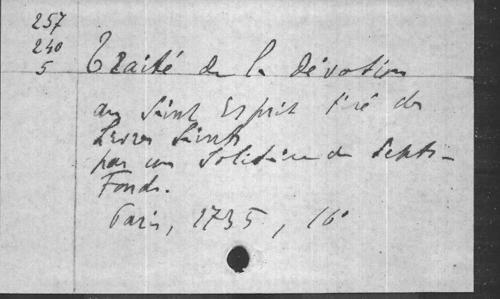 257
240
5
Traité de la dévotion
au Saint Esprit tiré des
Livres Saints
par un Solitaire de Septs-
Fonds.
Paris, 1735, 16°